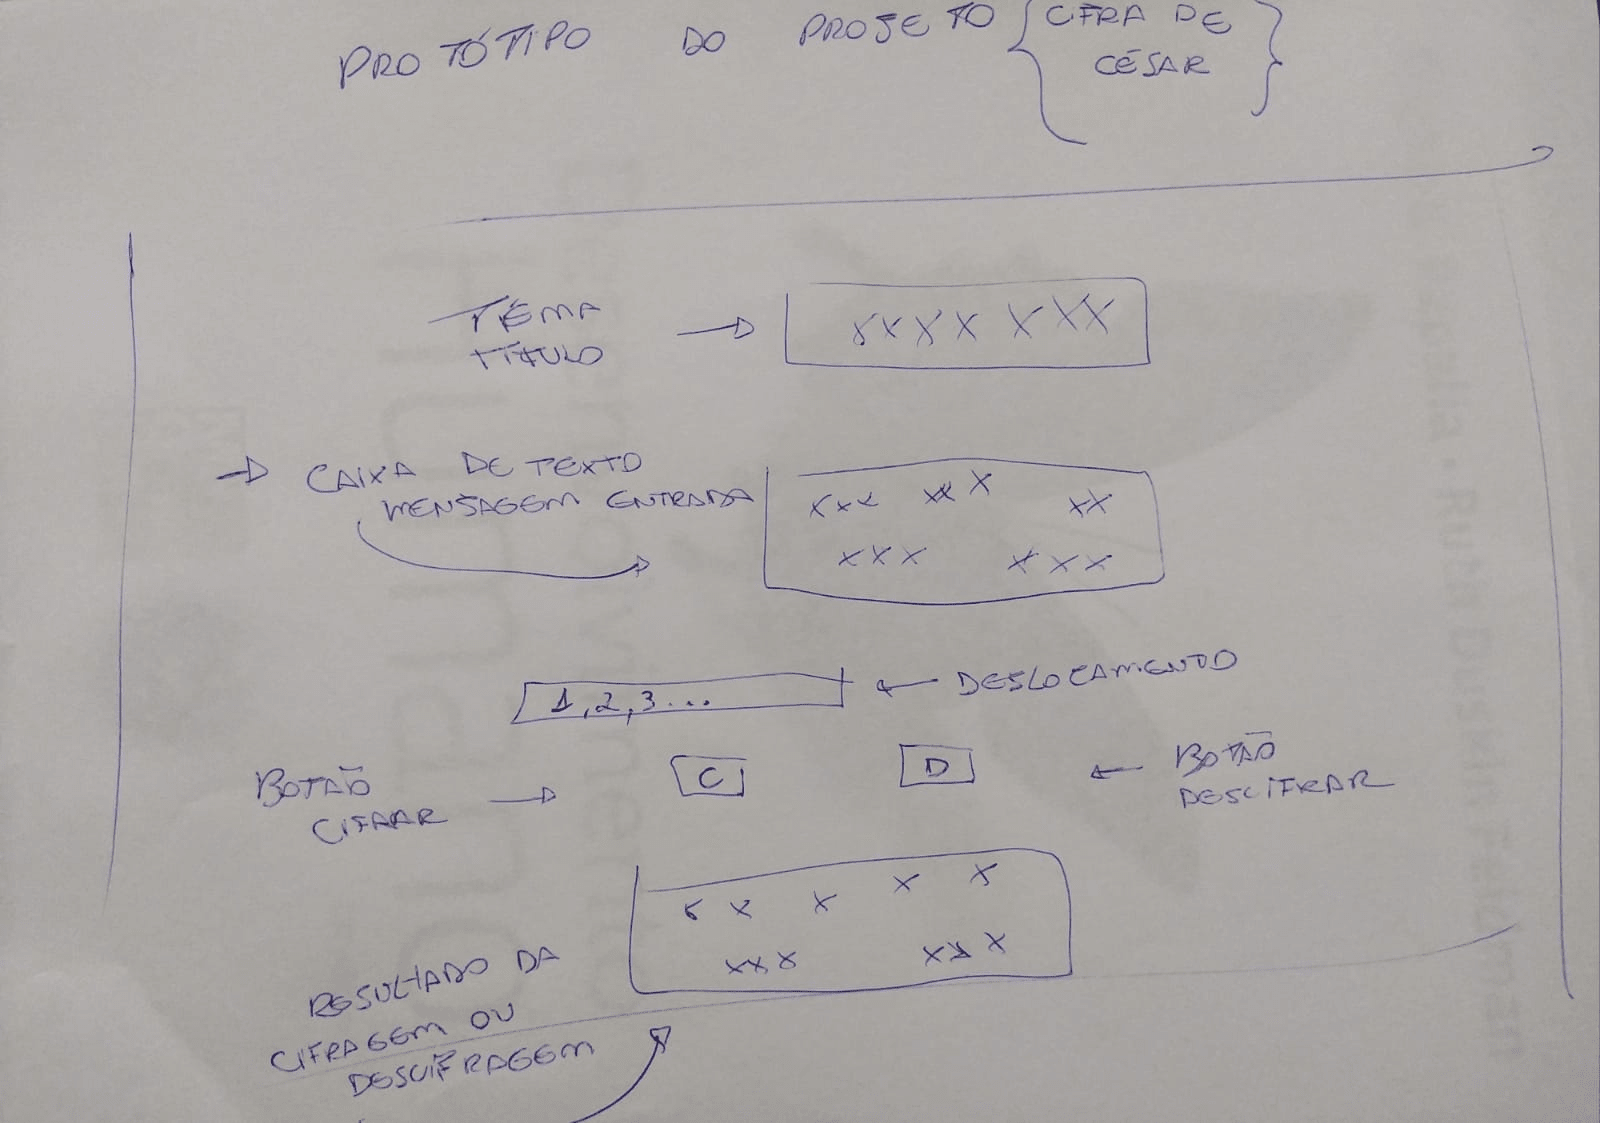 PROTÓTIPO DO PROJETO { CIFRA DE
CÉSAR }
TEMA
TÍTULO
XXXX XXX
CAIXA DE TEXTO
MENSAGEM ENTRADA
XXX XX X XX
XXX XXX
1,2,3...
DESLOCAMENTO
BOTÃO
CIFRAR
C
D
BOTÃO
DESCIFRAR
X X X X X
XXX XXX
RESULTADO DA
CIFRAGEM OU
DESCIFRAGEM